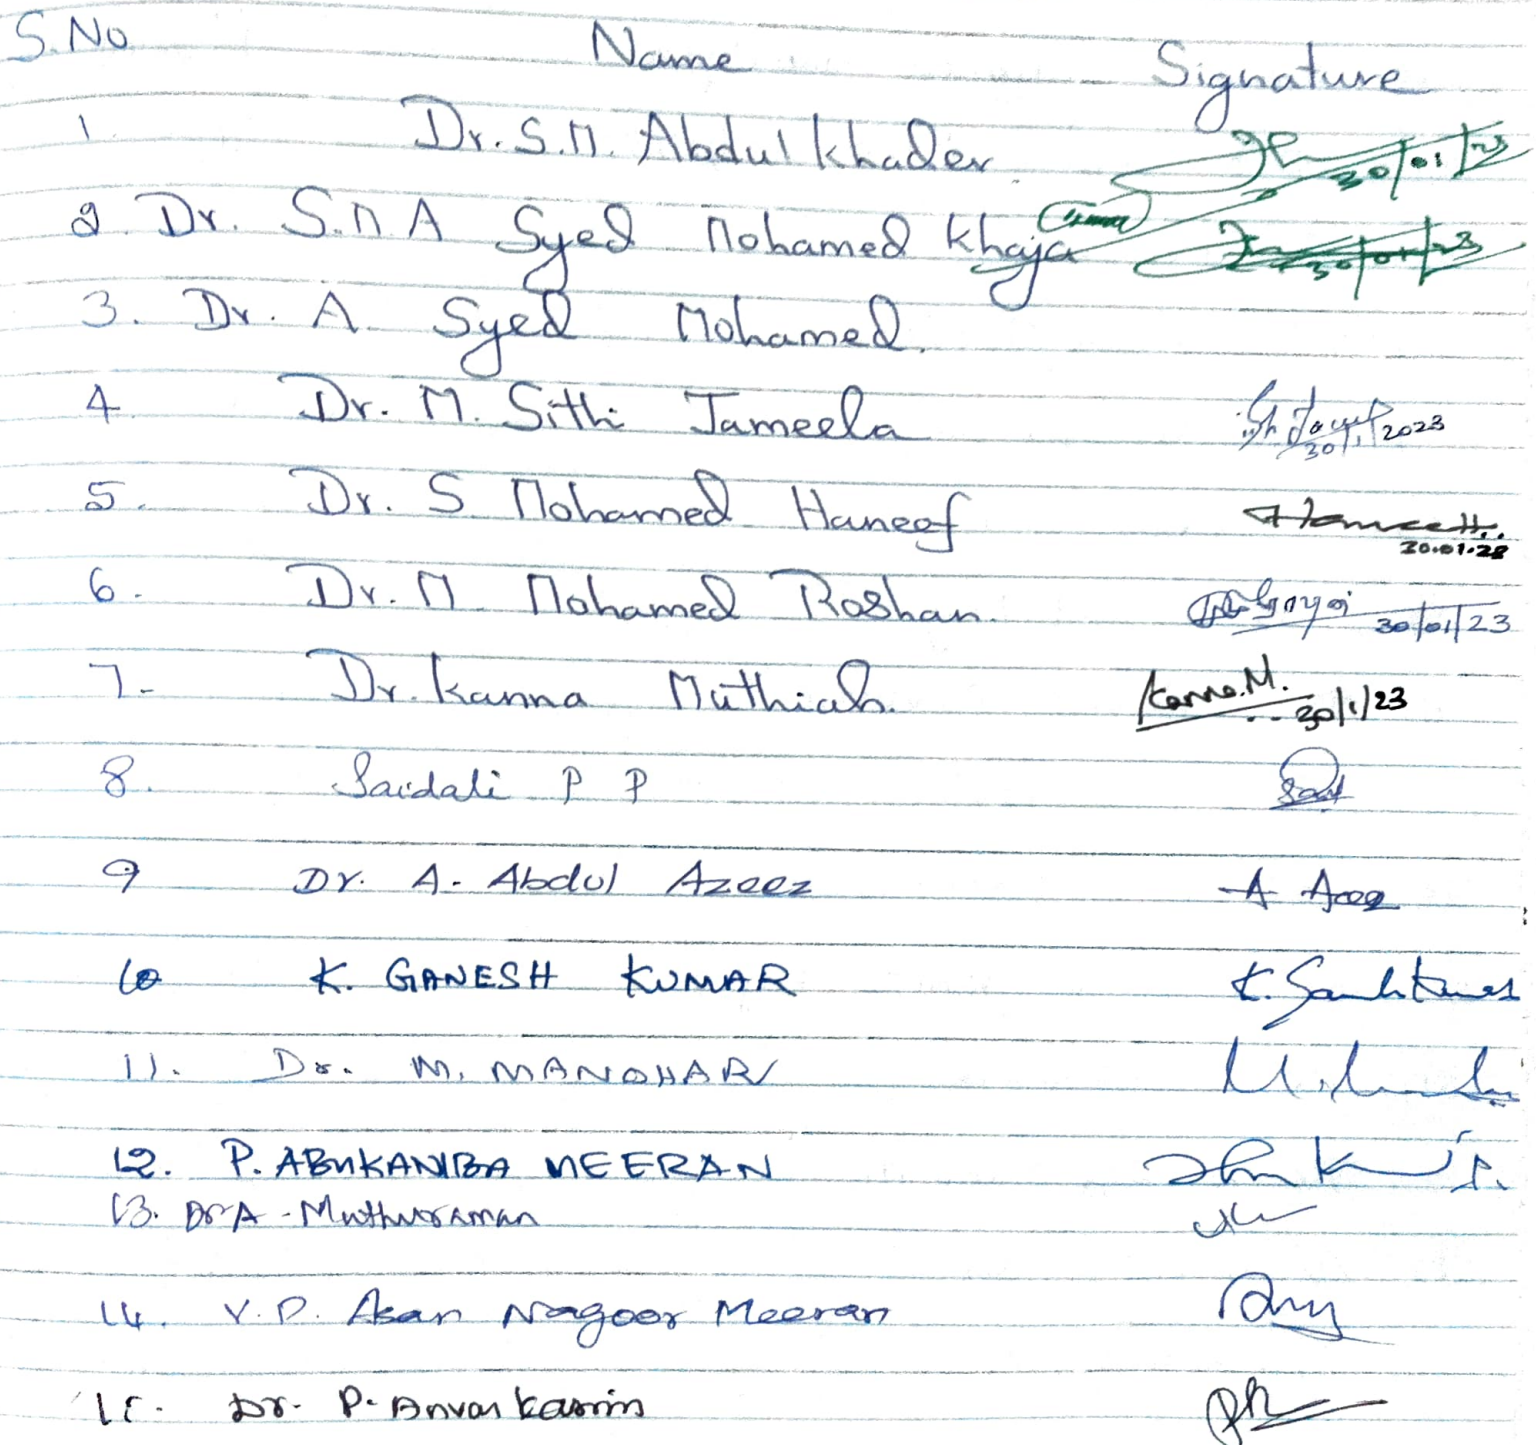 S.No Name Signature
1. Dr. S.M. Abdul khader 30/01/23
2. Dr. S.M A Syed Mohamed khaja 30/01/23
3. Dr. A. Syed Mohamed.
4. Dr. M. Sithi Jameela 30/1/2023
5. Dr. S. Mohamed Haneef 30.01.23
6. Dr. M. Mohamed Roshan. 30/01/23
7. Dr. Kanna Muthiah. Kanna.M. 30/1/23
8. Saidali P P
9 Dr. A. Abdul Azeez A Azeez
10 K. GANESH KUMAR
11. Dr. M. MANOHAR
12. P. ABUKANIBA MEERAN
13. Dr A. Muthuraman
14. V.P. Asan Nagoor Meeran
15. Dr. P. Anvar kasim